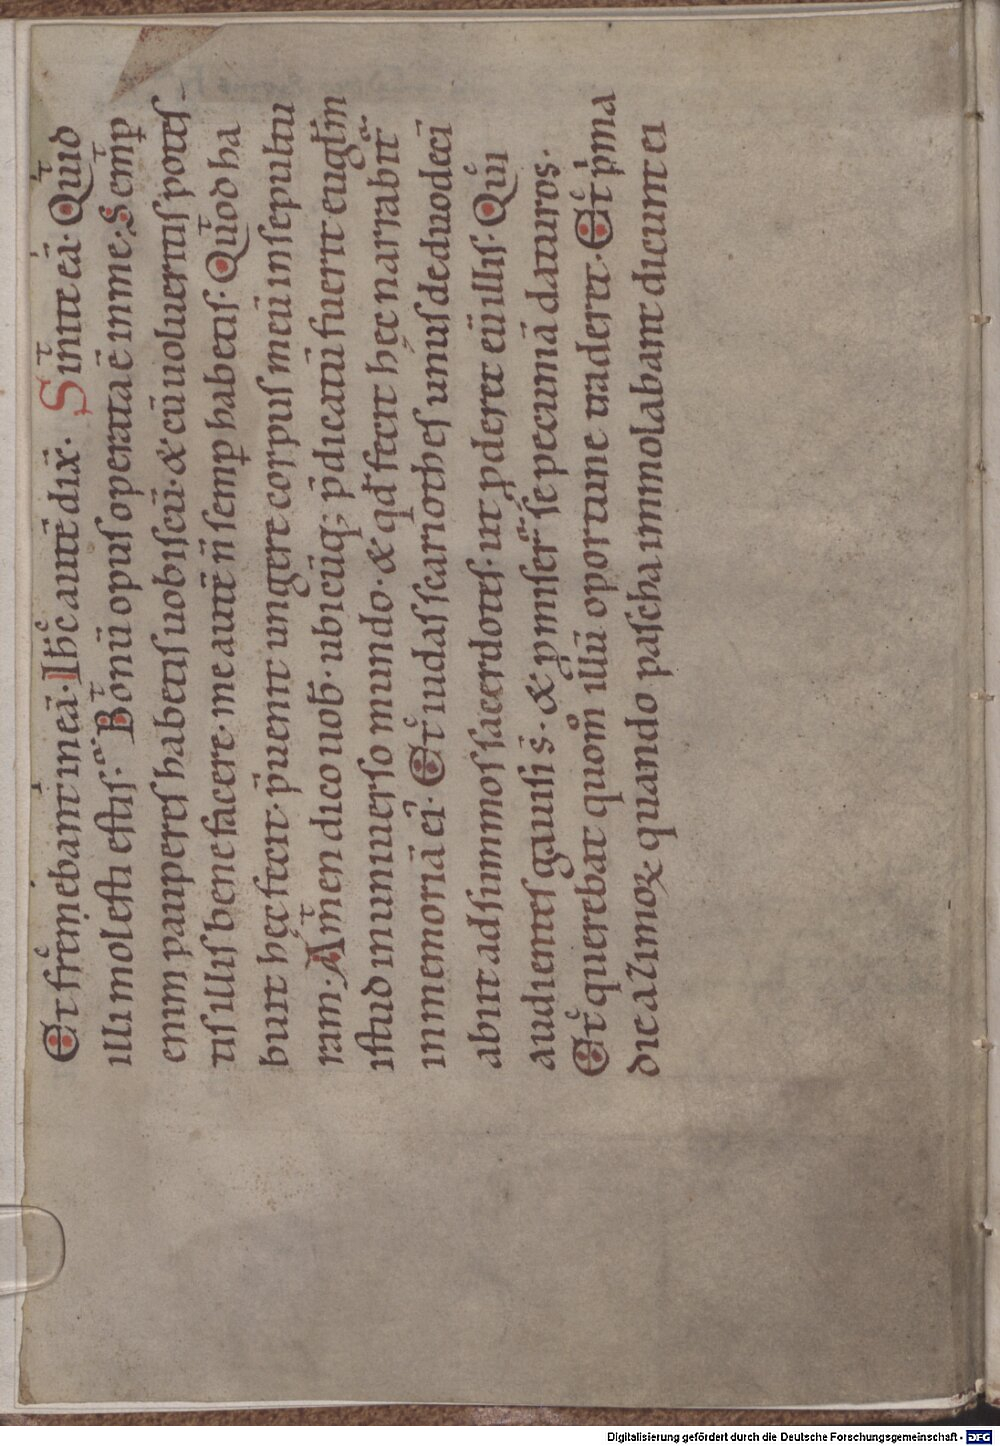 Et fremebant ineā· Ihc autē dix̄· Sinite eā· Quid
illi molesti estis· Bonū opus operata ē inme· Semꝑ
enim pauperes habetis uobiscū· & cū uolueritis potes-
tis illis bene facere· me autē n̄ semꝑ habetis· Quod ha
buit hęc fecit· p̄uenit ungere corpus meū insepultu
ram· Amen dico uob̄· ubicūq; p̄dicatū fuerit eugłm
istud inuniuerso mundo· & qđ fecit hęc narrabit̄
inmemoriā ei· Et iudas scariothes unus deduodecī
abiit adsummos sacerdotes· ut ꝓderet eū illis· Qui
audientes gauisi s̄· & ꝓmiser̄ se pecuniā daturos·
Et querebat quom̊ illū oportune traderet· Et pͥma
die azimoꝝ quando pascha immolabant dicunt ei
Digitalisierung gefördert durch die Deutsche Forschungsgemeinschaft - DFG